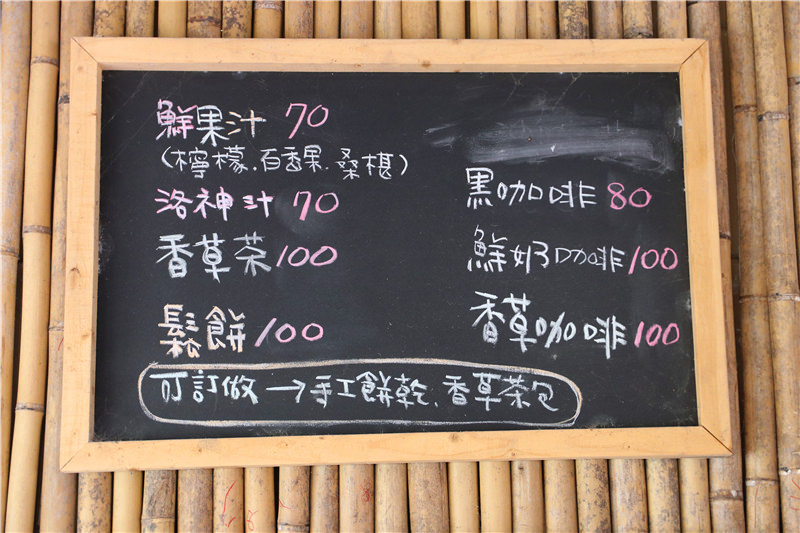 鮮果汁 70
(檸檬.百香果.桑椹)
洛神汁 70
香草茶 100
鬆餅 100
黑咖啡 80
鮮奶咖啡 100
香草咖啡 100
可訂做→手工餅乾、香草茶包